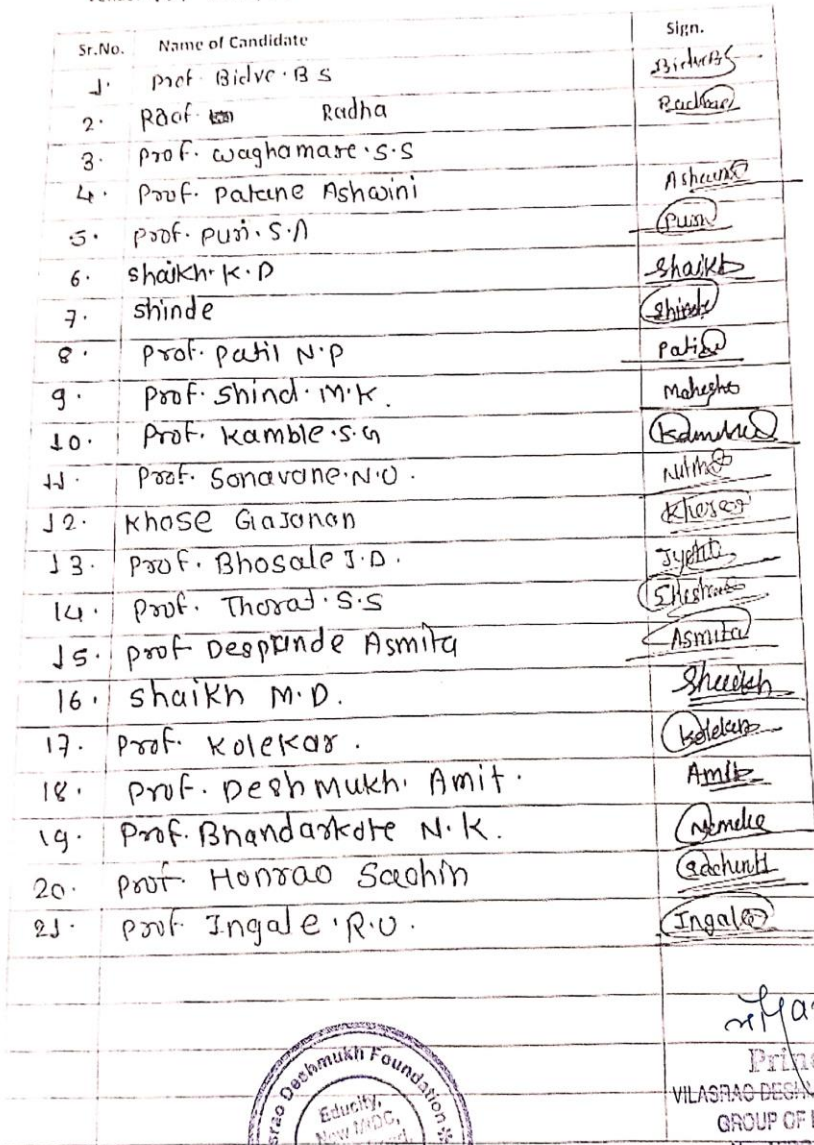 Sr.No. Name of Candidate Sign.
1. Prof. Bidve. B S BidveBS
2. Raof. Radha Radha
3. Prof. waghamare. S.S
4. Prof. Patane Ashwini Ashwini
5. Prof. Puri. S.A Puri
6. Shaikh. K. P Shaikh
7. Shinde Shinde
8. Prof. Patil N.P Patil
9. Prof. Shind. M.K. Mahesh
10. Prof. Kamble .S.G Kamble
11. Prof. Sonavane. N.U.
12. Khose Gajanan
13. Prof. Bhosale J.D. Jyoti
14. Prof. Thorat. S.S
15. Prof Despande Asmita Asmita
16. Shaikh M.D. Shaikh
17. Prof. Kolekar. Kolekar
18. Prof. Deshmukh. Amit. Amit
19. Prof. Bhandarkote N.K.
20. Prof. Honrao Sachin SachinH
21. Prof. Ingale .R.U. Ingale
srao Deshmukh Foundation
Educity,
New MIDC,
Prin
VILASRAO DESHM
GROUP OF